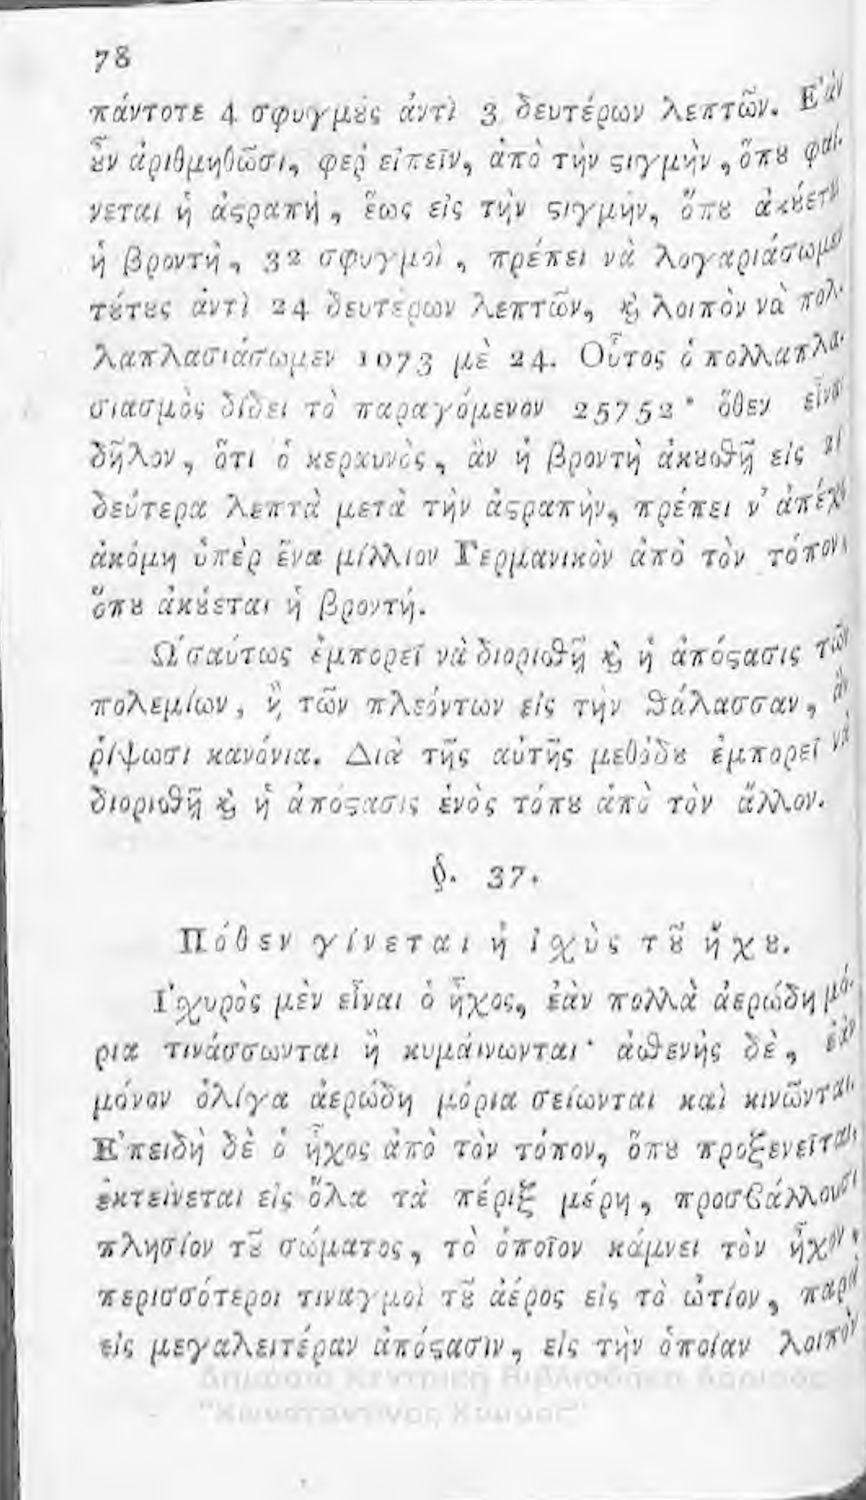 78
πάντοτε 4 σφυγμȣ̀ς ἀντὶ 3 δευτέρων λεπτῶν. Ἐὰν
ȣ̓͂ν ἀριθμηθῶσι, φερ' εἰπεῖν, ἀπὸ τὴν ϛιγμὴν, ὅπȣ φαί-
νεται ἡ ἀϛραπὴ, ἕως εἰς τὴν ϛιγμὴν, ὅπȣ ἀκȣ́εται
ἡ βροντὴ, 32 σφυγμοὶ, πρέπει νὰ λογαριάσωμεν
τȣ́τȣς ἀντὶ 24 δευτέρων λεπτῶν, ϗ̀ λοιπὸν νὰ πολ-
λαπλασιάσωμεν 1073 μὲ 24. Οὗτος ὁ πολλαπλα-
σιασμὸς δίδει τὸ παραγόμενον 25752· ὅθεν εἶναι
δῆλον, ὅτι ὁ κεραυνὸς, ἂν ἡ βροντὴ ἀκȣσθῇ εἰς
δεύτερα λεπτὰ μετὰ τὴν ἀϛραπὴν, πρέπει ν' ἀπέχῃ
ἀκόμη ὑπὲρ ἕνα μίλλιον Γερμανικὸν ἀπὸ τὸν τόπον,
ὅπȣ ἀκȣ́εται ἡ βροντή.
Ὡσαύτως ἐμπορεῖ νὰ διορισθῇ ϗ̀ ἡ ἀπόϛασις τῶν
πολεμίων, ἢ τῶν πλεόντων εἰς τὴν θάλασσαν, ἂν
ῥίψωσι κανόνια. Διὰ τῆς αὐτῆς μεθόδȣ ἐμπορεῖ νὰ
διορισθῇ ϗ̀ ἡ ἀπόϛασις ἑνὸς τόπȣ ἀπὸ τὸν ἄλλον.
§. 37.
Πόθεν γίνεται ἡ ἰσχὺς τȣ͂ ἤχȣ.
Ἰσχυρὸς μὲν εἶναι ὁ ἦχος, ἐὰν πολλὰ ἀερώδη μό-
ρια τινάσσωνται ἢ κυμαίνωνται· ἀσθενὴς δὲ, ἐὰν
μόνον ὀλίγα ἀερώδη μόρια σείωνται καὶ κινῶνται.
Ἐπειδὴ δὲ ὁ ἦχος ἀπὸ τὸν τόπον, ὅπȣ προξενεῖται,
ἐκτείνεται εἰς ὅλα τὰ πέριξ μέρη, προσβάλλουσι
πλησίον τȣ͂ σώματος, τὸ ὁποῖον κάμνει τὸν ἦχον,
περισσότεροι τιναγμοὶ τȣ͂ ἀέρος εἰς τὸ ὠτίον, παρὰ
εἰς μεγαλειτέραν ἀπόϛασιν, εἰς τὴν ὁποίαν λοιπὸν
Δημόσια Κεντρική Βιβλιοθήκη Λάρισας
"Κωνσταντίνος Κούμας"